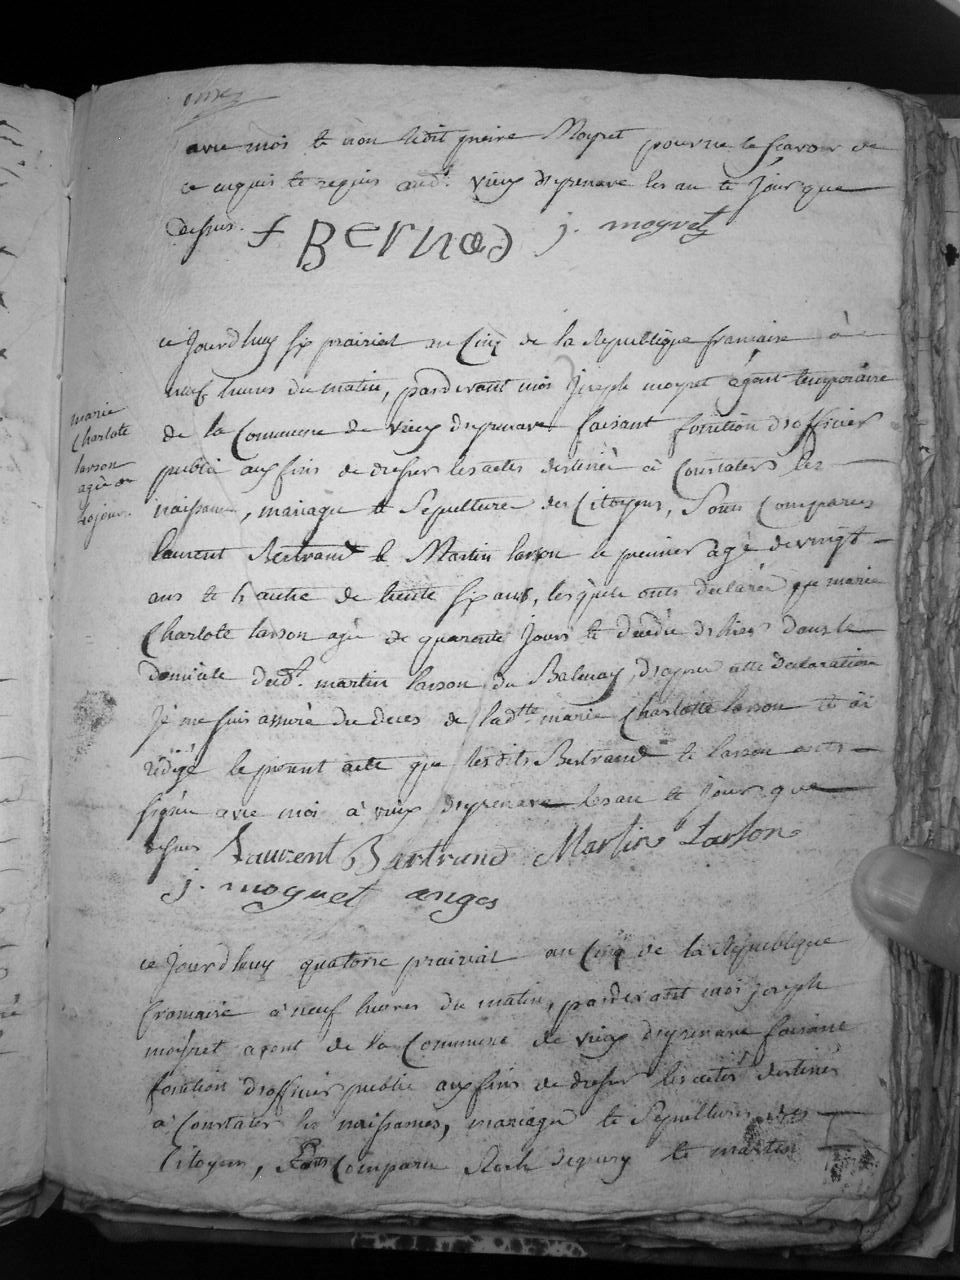 onze
avec moi et non ledit pierre Moyret pour ne le scavoir de
ce enquis et requis aud.t vieux d'izenave les an et jour que
dessus. f Bernad j. moyret
ce Jourdhuy six prairial an Cinq de la Republique francaise à
neuf heures du matin, pardevant moi Joseph moyret agent temporaire
de la Commune de vieux d'izenave faisant fonction d'officier
public aux fins de dresser les actes destinés à Constater les
naissances, mariages et Sepultures des Citoyens, Sont Comparus
laurent Bertrand & Martin larson le premier agé de vingt
ans et l'autre de trente six ans, lesquels onts declaré que marie
Charlote larson agée de quarente Jours et decedée d'hier dans le
domicile dud.t martin larson du Balmay, d'apres cette declaration
Je me suis assuré du deces de ladtte marie Charlotte larson et ai
rédigé le present acte que lesdits Bertrand et larson onts
signés avec moi à vieux d'izenave les an et Jour que
dessus Laurent Bertrand Martin Larson
j. moyret angt
marie
Charlote
larson
agée de
40 jours
ce Jourdhuy quatorze prairial an Cinq de la Republique
francaise à neuf heures du matin, pardevant moi joseph
moyret agent de la Commune de vieux d'izenave faisant
fonction d'officier public aux fins de dresser les actes destinés
à Constater les naissances, mariages et Sepultures des
Citoyens, Sont Comparu et martin